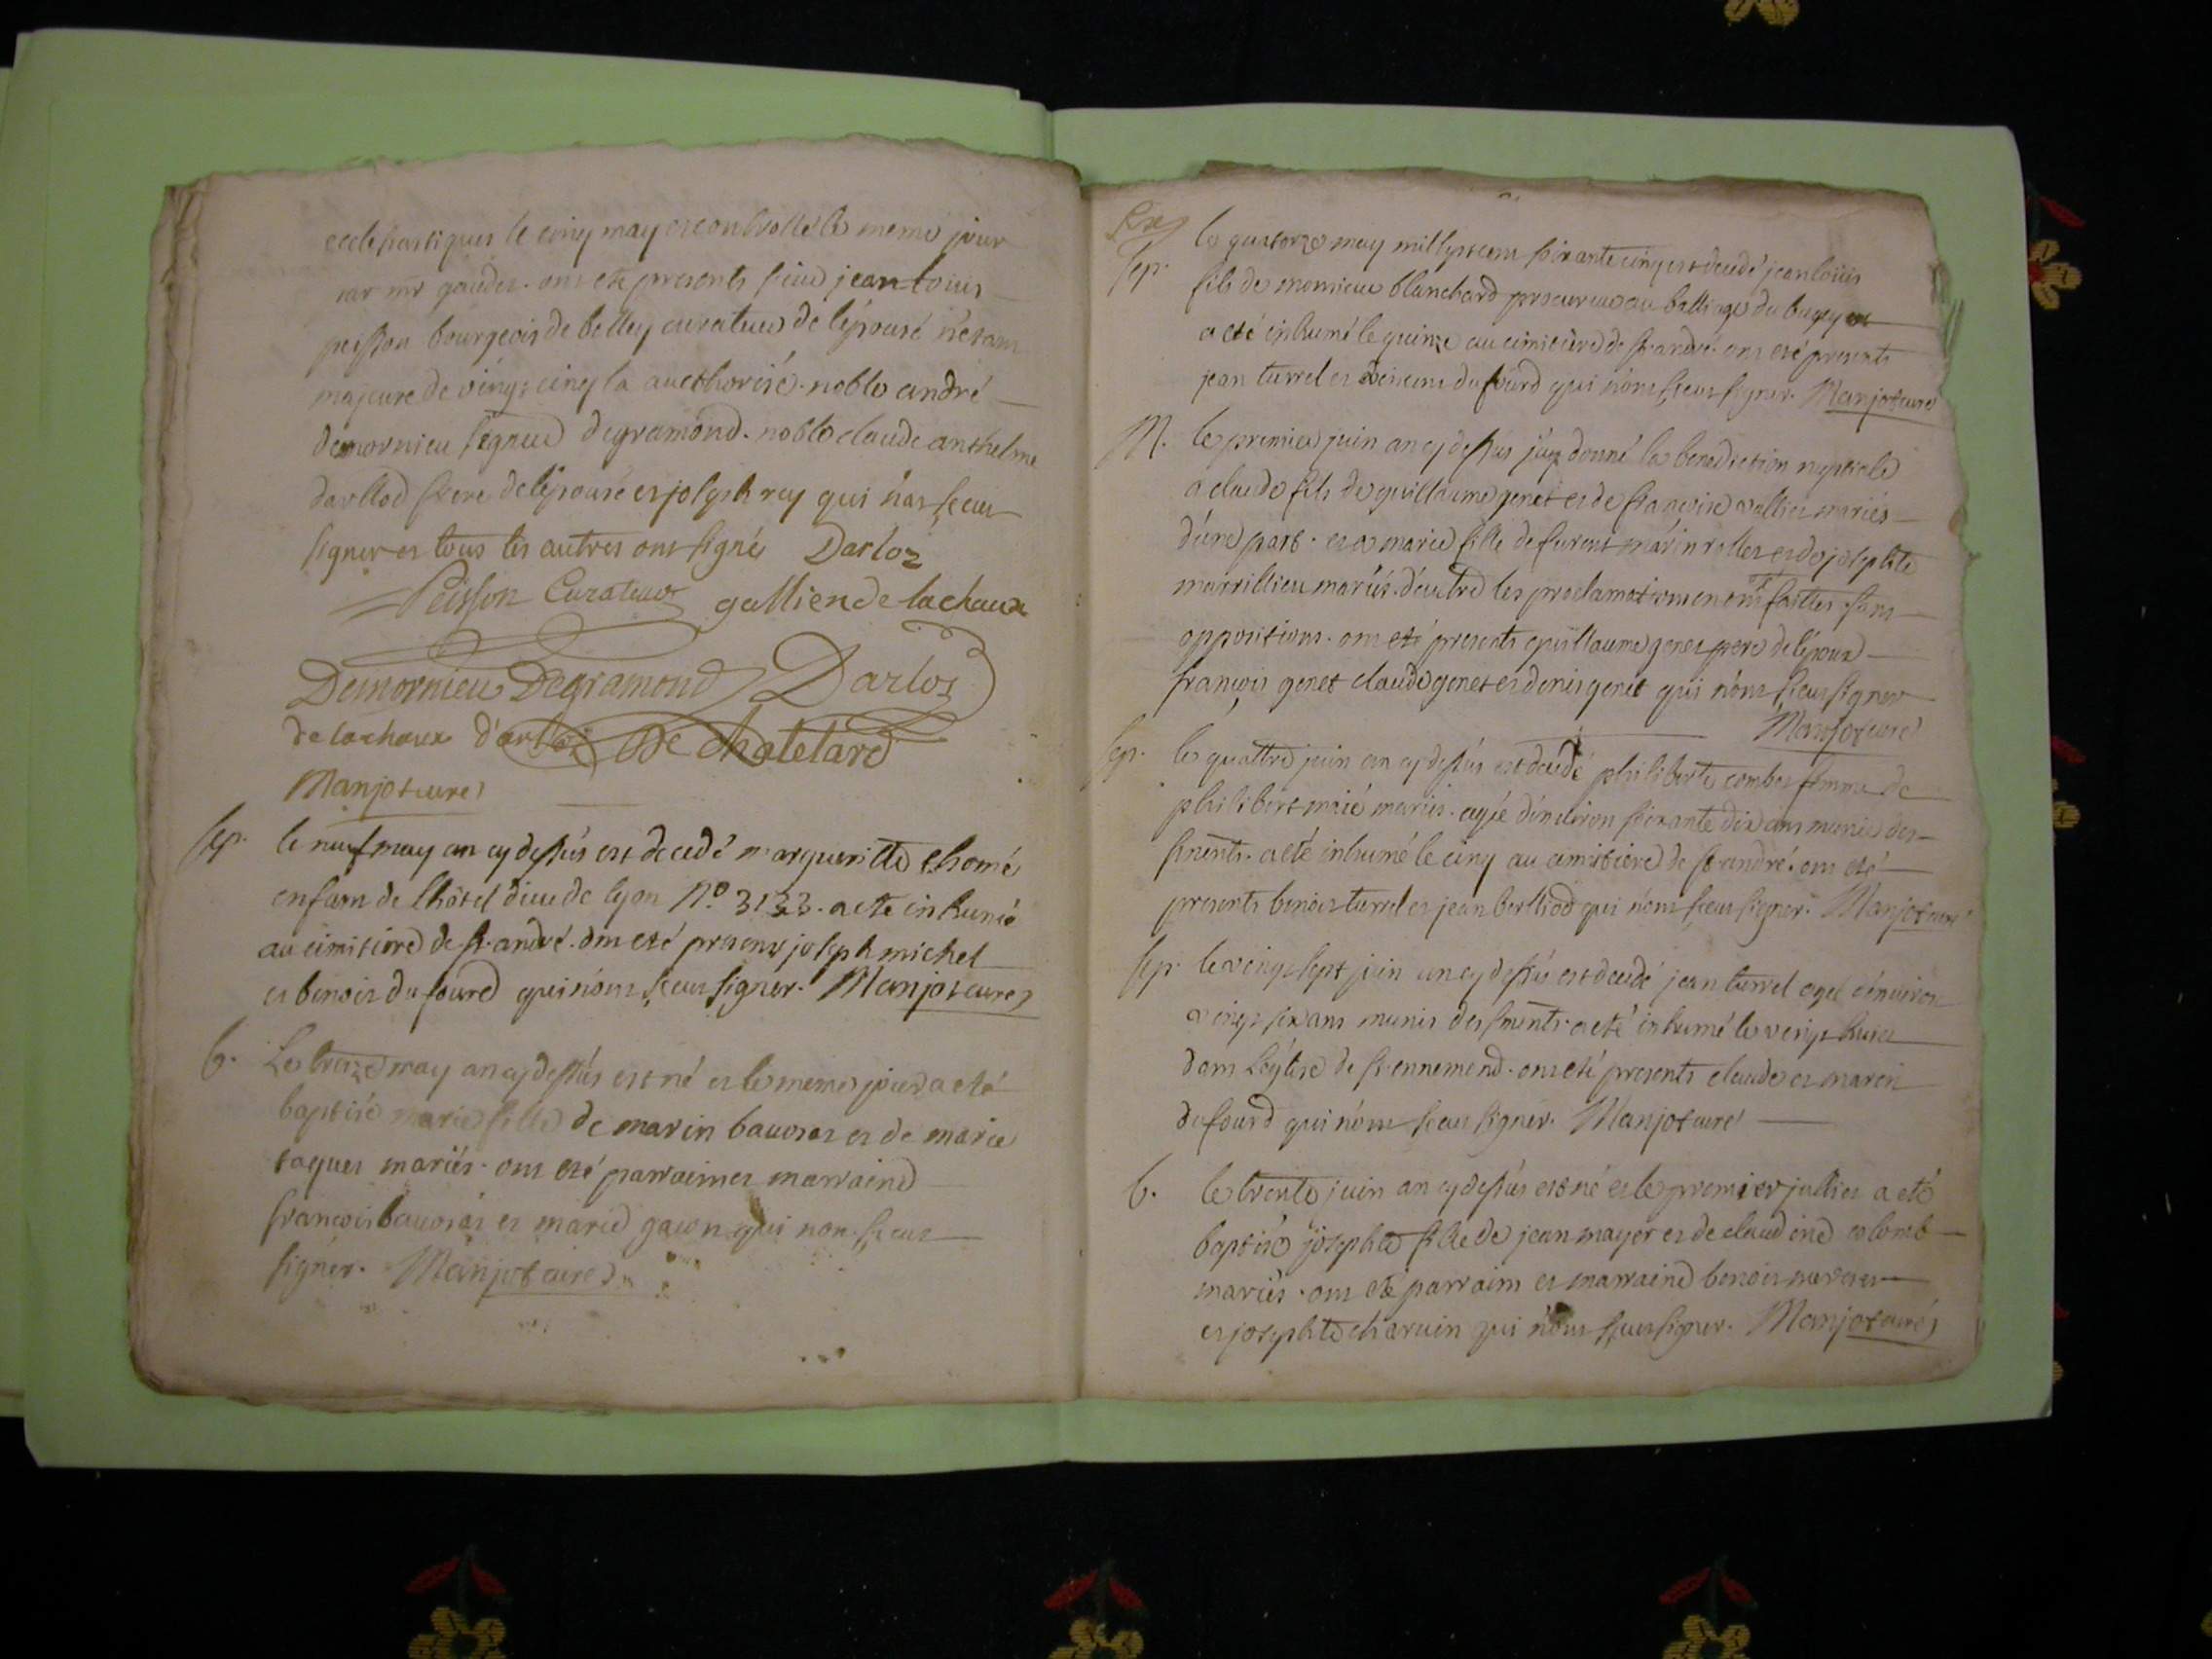 ecclesiastiques le cinq may et controllé le meme jour
par mr gaudet. ont eté presents sieur jean louis
peisson bourgeois de belley curateur de l'épouse n'etant
majeure de vingt cinq la aucthorisé. noble andré
demornieu segneur degramond. noble claude anthelme
darlod frere de l'épouse et joseph rey qui n'as sceut
signer et tous les autres ont signés Darloz
Peisson Curateur galliendelachaux
Demornieu Degramond Darloz
delachaux d'arloz De chatelard
Manjot curé
sep. le neuf may an cy dessús est decedé margueritte thomé
enfant de lhôtel dieu de lyon No. 3133. a eté inhumé
au cimitiere de st. andré. ont eté presents joseph michel
et benoit du fourd qui n'ont sceut signer. Manjot curé
b. Le treize may an cy dessús est né et le meme jour a eté
baptisé marie fille de marin bauosat et de marie
taquet mariés. ont eté parrain et marraine
francois bauosat et marie qui non sceut
signer. Manjot curé
sep. le quatorze may mill sept cent soixante cinq est decedé jean loüis
fils de monsieur blanchard procureur au balliage du bugey
a eté inhumé le quinze au cimitière de st. andré. ont eté presents
jean turrel et du fourd qui n'ont sceut signer. Manjot curé
M. le premier juin an cy dessus j'ay donné la benediction nuptiale
a claude fils de guillaume genet et de françoise vallier mariés
d'une part. et a marie fille de furent marin rollet et de josephte
marrillieu mariés d'autre les proclamations en ont eté faittes sans
oppositions. ont eté presents guillaume genet pere de l'époux
françois genet claude genet et denis genet qui n'ont sceut signer
Manjot curé
sep. le quattre juin an cy dessús est decedé philiberte combet femme de
philibert maié mariés. agée d'environ soixante dix ans munie des
srments. a eté inhumé le cinq au cimitiere de st. andré. ont eté
presents benoit turrel et jean berliod qui n'ont sceut signer. Manjot curé
sep. le vingt sept juin an cy dessús est decedé jean turrel agé d'environ
vingt six ans munis des srments. a eté inhumé le vingt huit
dans l'église de st. ennemend. ont eté presents claude et marin
du fourd qui n'ont sceut signer. Manjot curé
b. le trente juin an cy dessús est né et le premier julliet a eté
baptisé josephte fille de jean mayer et de claudine colomb
mariés. ont eté parrain et marraine benoit
et josephte charuin qui n'ont sceut signer. Manjot curé